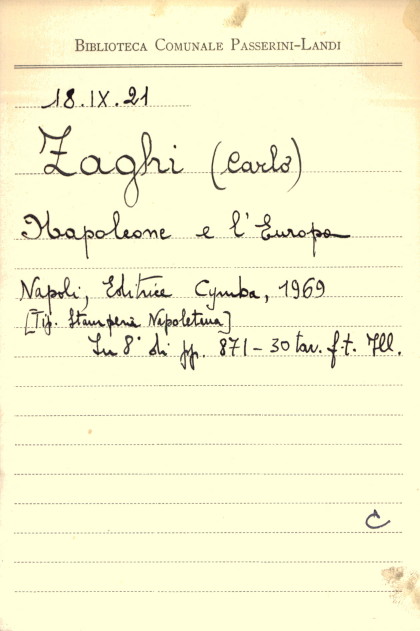 BIBLIOTECA COMUNALE PASSERINI-LANDI
18.IX.21
Zaghi (Carlo)
Napoleone e l'Europa
Napoli, Editrice Cymba, 1969
[Tip. Stamperia Napoletana]
In 8° di pp. 871 - 30 tav. f.t. Ill.
C